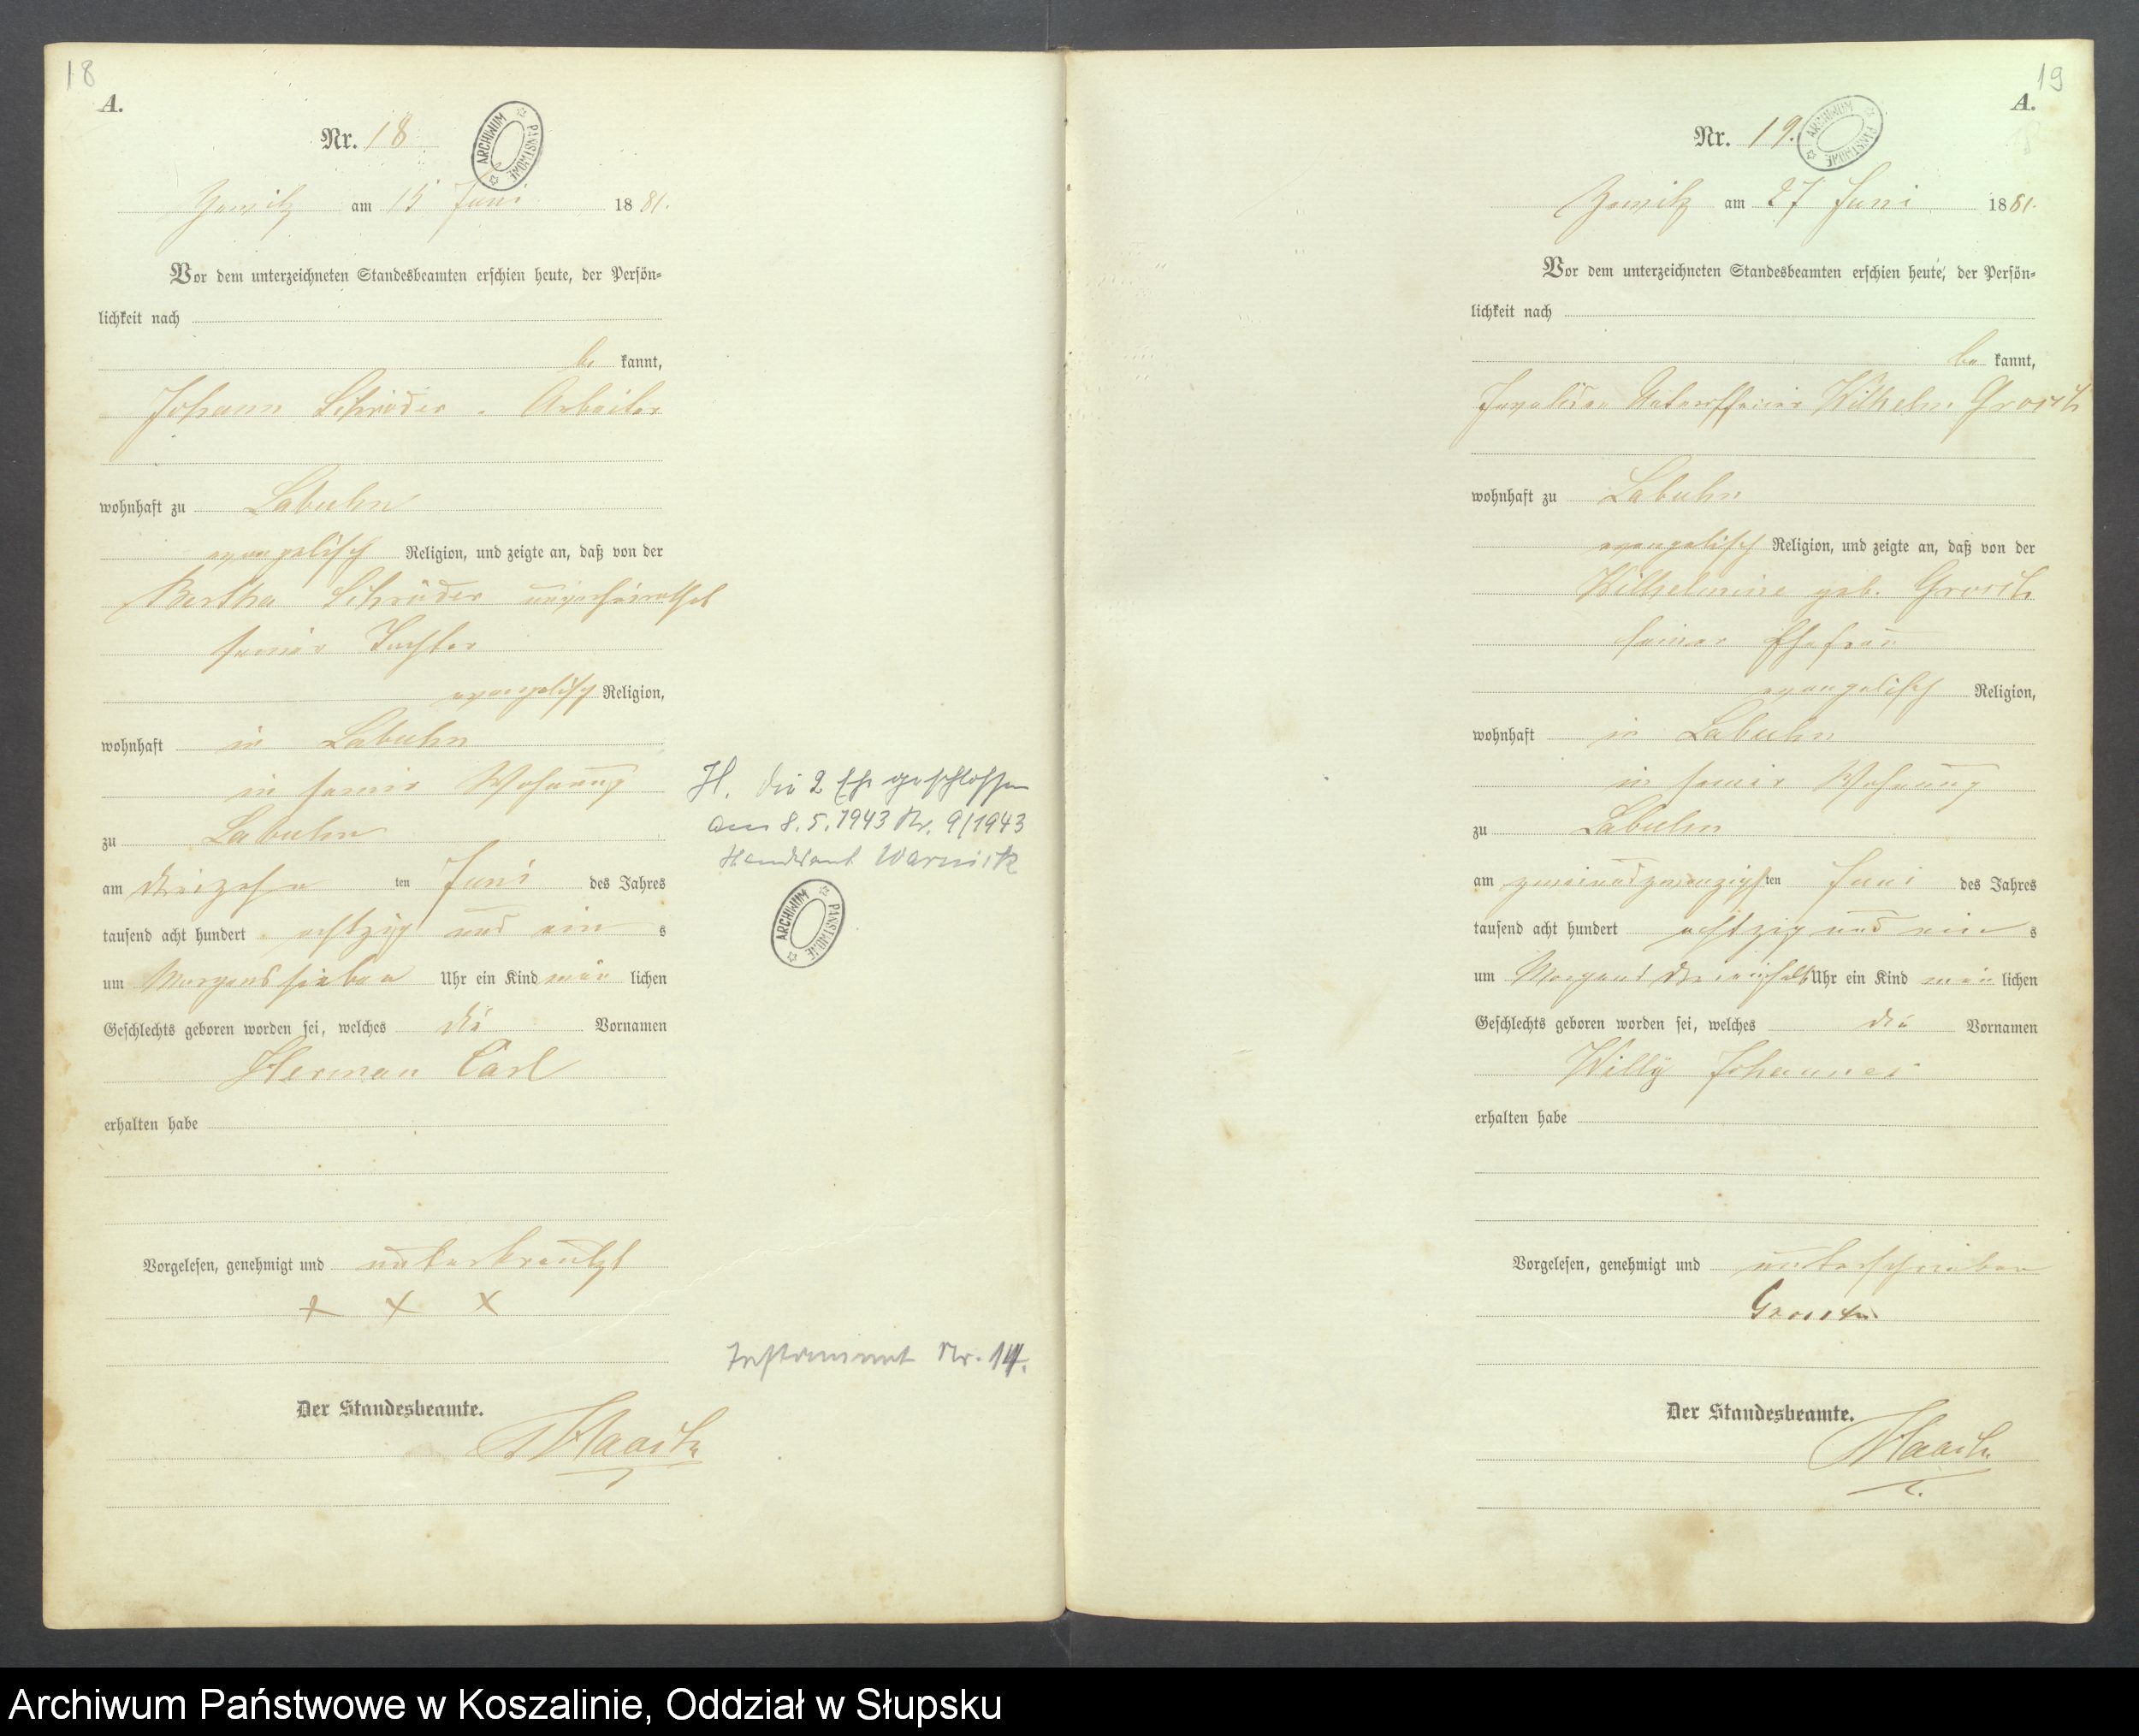 18
A.
Nr. 18
ARCHIWUM PAŃSTWOWE
Zewitz am 15 Juni 1881.
Vor dem unterzeichneten Standesbeamten erschien heute, der Persön-
lichkeit nach
be kannt,
Johann Schröder. Arbeiter
wohnhaft zu Labuhn
evangelisch Religion, und zeigte an, daß von der
Bertha Schröder unverheirathet
seiner Tochter
evangelisch Religion,
wohnhaft in Labuhn
in seiner Wohnung
zu Labuhn
am dreizehn ten Juni des Jahres
tausend acht hundert achtzig und ein s
um Morgens sieben Uhr ein Kind män lichen
Geschlechts geboren worden sei, welches die Vornamen
Herman Carl
erhalten habe
Vorgelesen, genehmigt und unterkreutzt
+ x x
Der Standesbeamte.
Haack
H. die 2 Ehe geschlossen
am 8. 5. 1943 Nr. 9/1943
Standesamt
ARCHIWUM PAŃSTWOWE
Nr. 14.
19
A.
Nr. 19.
ARCHIWUM PAŃSTWOWE
Zewitz am 27 Juni 1881.
Vor dem unterzeichneten Standesbeamten erschien heute, der Persön-
lichkeit nach
be kannt,
Invaliden Unteroffizier Wilhelm Grosch
wohnhaft zu Labuhn
evangelisch Religion, und zeigte an, daß von der
Wilhelmine geb. Grosch
seiner Ehefrau
evangelisch Religion,
wohnhaft in Labuhn
in seiner Wohnung
zu Labuhn
am zweiundzwanzigsten Juni des Jahres
tausend acht hundert achtzig und ein s
um Morgens dreieinhalb Uhr ein Kind män lichen
Geschlechts geboren worden sei, welches die Vornamen
Willy Johannes
erhalten habe
Vorgelesen, genehmigt und unterschrieben
Grosch
Der Standesbeamte.
Haack
Archiwum Państwowe w Koszalinie, Oddział w Słupsku